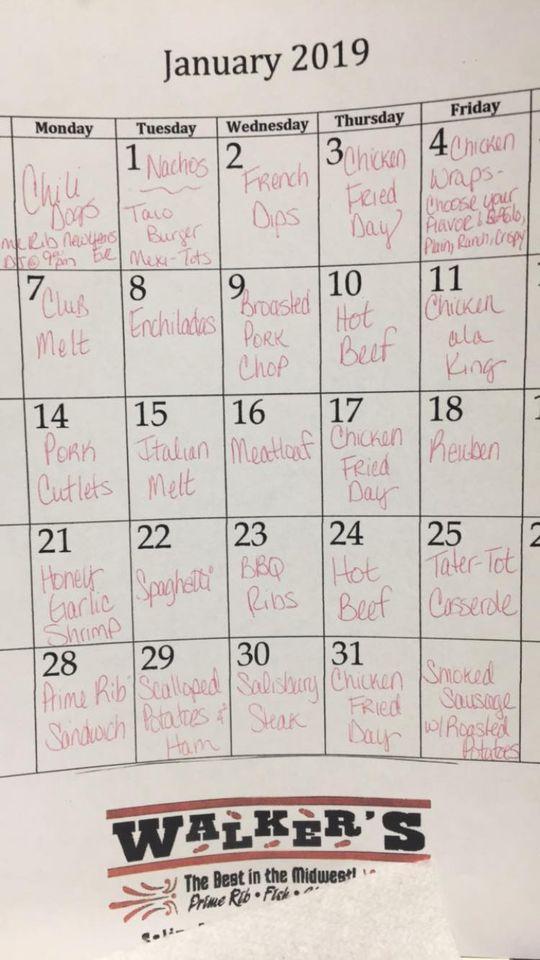 January 2019
Monday Tuesday Wednesday Thursday Friday
Chili
Dogs
Rib New Years
@ 9pm Eve
1 Nachos
Taco
Burger
Mexi-Tots
2
French
Dips
3 Chicken
Fried
Day
4 Chicken
Wraps-
Choose your
Flavor
Plain, Ranch, Crispy
7 Club
Melt
8
Enchiladas
9
Broasted
Pork
Chop
10
Hot
Beef
11
Chicken
ala
King
14
Pork
Cutlets
15
Italian
Melt
16
Meatloaf
17
Chicken
Fried
Day
18
Reuben
21
Honey
Garlic
Shrimp
22
Spaghetti
23
BBQ
Ribs
24
Hot
Beef
25
Tater-Tot
Casserole
2
28
Prime Rib
Sandwich
29
Scalloped
Potatoes &
Ham
30
Salisbury
Steak
31
Chicken
Fried
Day
Smoked
Sausage
w/Roasted
Potatoes
WALKER'S
The Best in the Midwest!
Prime Rib • Fish •